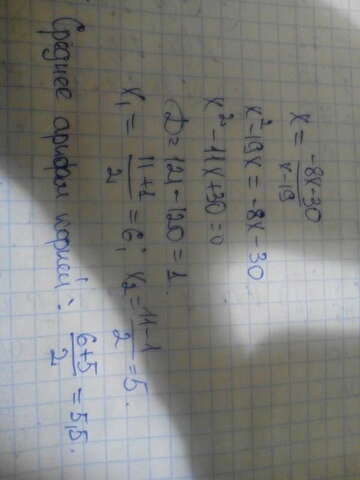 x = \frac{-8x-30}{x-19}
x² - 19x = -8x - 30
x² - 11x + 30 = 0
D = 121 - 120 = 1.
x₁ = \frac{11+1}{2} = 6; x₂ = \frac{11-1}{2} = 5.
Среднее арифм корней: \frac{6+5}{2} = 5,5.